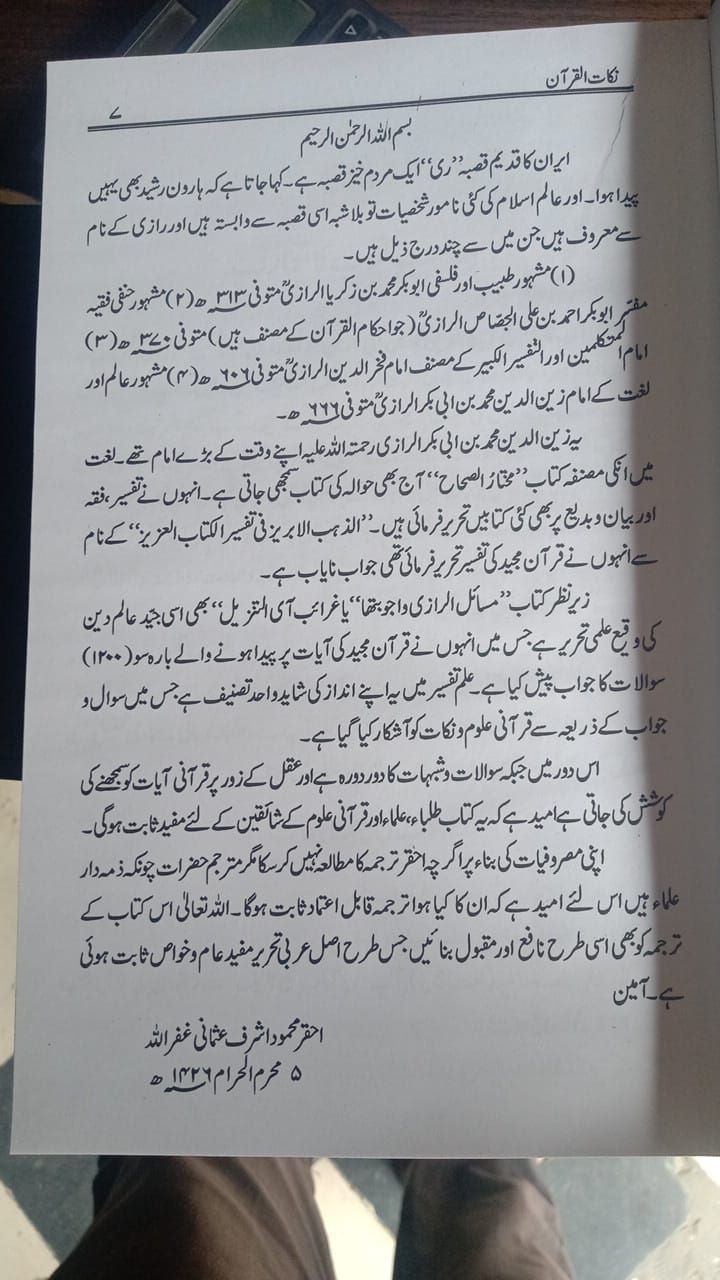 نکات القرآن
۷
بسم اللہ الرحمٰن الرحیم
ایران کا قدیم قصبہ ”ری“ ایک مردم خیز قصبہ ہے۔ کہا جاتا ہے کہ ہارون رشید بھی یہیں
پیدا ہوا۔ اور عالم اسلام کی کئی نامور شخصیات تو بلاشبہ اسی قصبہ سے وابستہ ہیں اور رازی کے نام
سے معروف ہیں جن میں سے چند درج ذیل ہیں۔
(۱) مشہور طبیب اور فلسفی ابوبکر محمد بن زکریا الرازیؒ متوفی ۳۱۳ھ (۲) مشہور حنفی فقیہ
مفسّر ابوبکر احمد بن علی الجصّاص الرازیؒ (جو احکام القرآن کے مصنف ہیں) متوفی ۳۷۰ھ (۳)
امام المتکلمین اور التفسیر الکبیر کے مصنف امام فخر الدین الرازیؒ متوفی ۶۰۶ھ (۴) مشہور عالم اور
لغت کے امام زین الدین محمد بن ابی بکر الرازیؒ متوفی ۶۶۶ھ۔
یہ زین الدین محمد بن ابی بکر الرازی رحمتہ اللہ علیہ اپنے وقت کے بڑے امام تھے۔ لغت
میں انکی مصنفہ کتاب ”مختارُ الصحاح“ آج بھی حوالہ کی کتاب سمجھی جاتی ہے۔ انہوں نے تفسیر، فقہ
اور بیان و بدیع پر بھی کئی کتابیں تحریر فرمائی ہیں۔ ”الذہب الابریز فی تفسیر الکتاب العزیز“ کے نام
سے انہوں نے قرآن مجید کی تفسیر تحریر فرمائی تھی جو اب نایاب ہے۔
زیر نظر کتاب ”مسائل الرازی واجوبتھا“ یا غرائب آی التنزیل“ بھی اسی جیّد عالم دین
کی وقیع علمی تحریر ہے جس میں انہوں نے قرآن مجید کی آیات پر پیدا ہونے والے بارہ سو (۱۲۰۰)
سوالات کا جواب پیش کیا ہے۔ علم تفسیر میں یہ اپنے انداز کی شاید واحد تصنیف ہے جس میں سوال و
جواب کے ذریعہ سے قرآنی علوم و نکات کو آشکار کیا گیا ہے۔
اس دور میں جبکہ سوالات و شبہات کا دور دورہ ہے اور عقل کے زور پر قرآنی آیات کو سمجھنے کی
کوشش کی جاتی ہے امید ہے کہ یہ کتاب طلباء، علماء اور قرآنی علوم کے شائقین کے لئے مفید ثابت ہوگی۔
اپنی مصروفیات کی بناء پر اگرچہ احقر ترجمہ کا مطالعہ نہیں کر سکا مگر مترجم حضرات چونکہ ذمہ دار
علماء ہیں اس لئے امید ہے کہ ان کا کیا ہوا ترجمہ قابل اعتماد ثابت ہوگا۔ اللہ تعالیٰ اس کتاب کے
ترجمہ کو بھی اسی طرح نافع اور مقبول بنائیں جس طرح اصل عربی تحریر مفید عام و خواص ثابت ہوئی
ہے۔ آمین
احقر محمود اشرف عثمانی غفر اللہ
۵ محرم الحرام ۱۴۲۶ھ